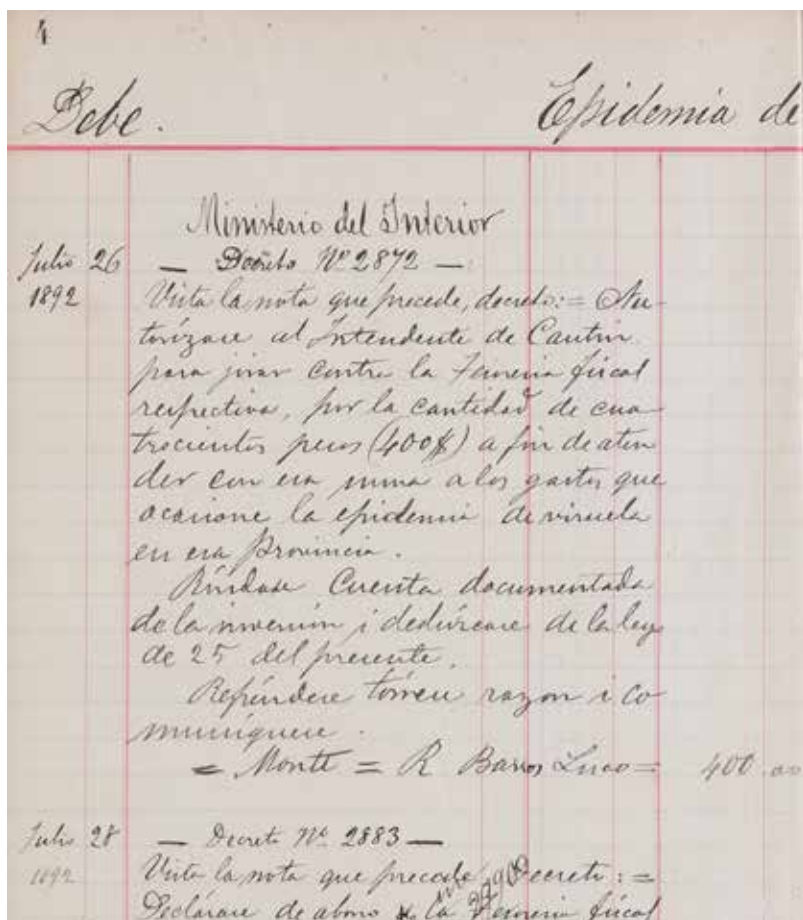 4
Debe. Epidemia de
Ministerio del Interior
Julio 26 — Decreto Nº 2872 —
1892 Vista la nota que precede, decreto: = Au-
torízase al Intendente de Cautin
para jirar contra la Tesoreria fiscal
respectiva, por la cantidad de cua
trocientos pesos (400$) a fin de aten
der con esa suma a los gastos que
ocasione la epidemia de viruela
en esa Provincia.
Ríndase Cuenta documentada
de la inversion i dedúzcase de la ley
de 25 del presente.
Refréndese tómese razon i co
muníquese.
= Montt = R Barros Luco = 400.00
Julio 28 — Decreto Nº 2883 —
1892 Vista la nota que precede, Decreto: =
Declárase de abono a la Tesoreria fiscal